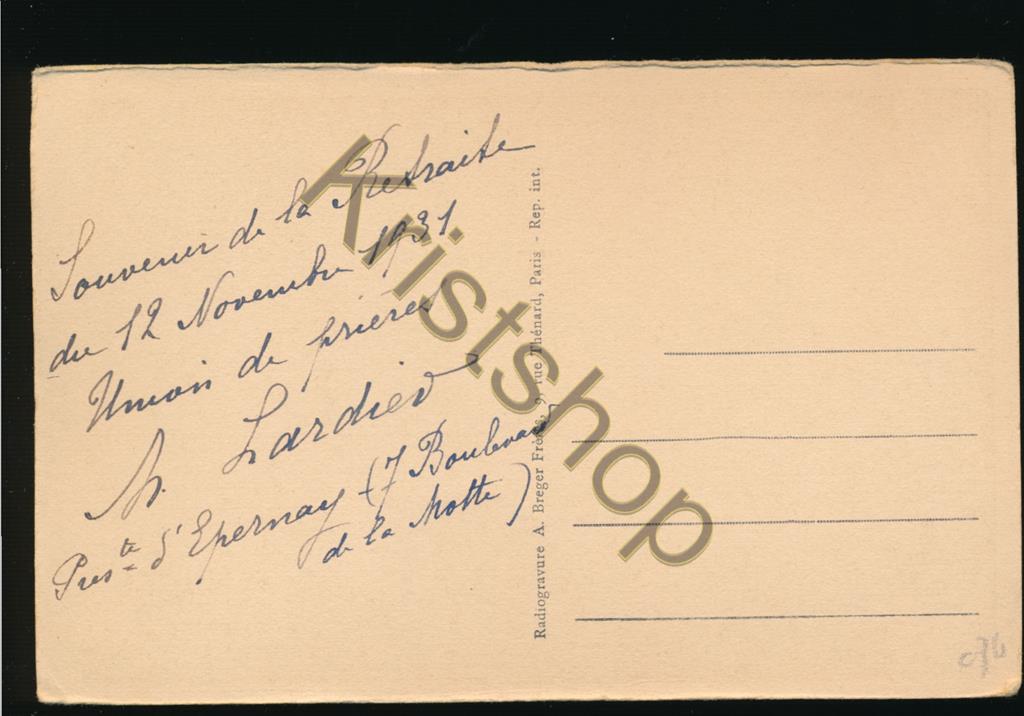 Souvenir de la Retraite
du 12 Novembre 1931
Union de prières
M. Lardier
Pres.te d'Epernay (7 Boulevard
de la Motte)
Radiogravure A. Breger Frères, 9, rue Thénard, Paris - Rep. int.
Kristshop